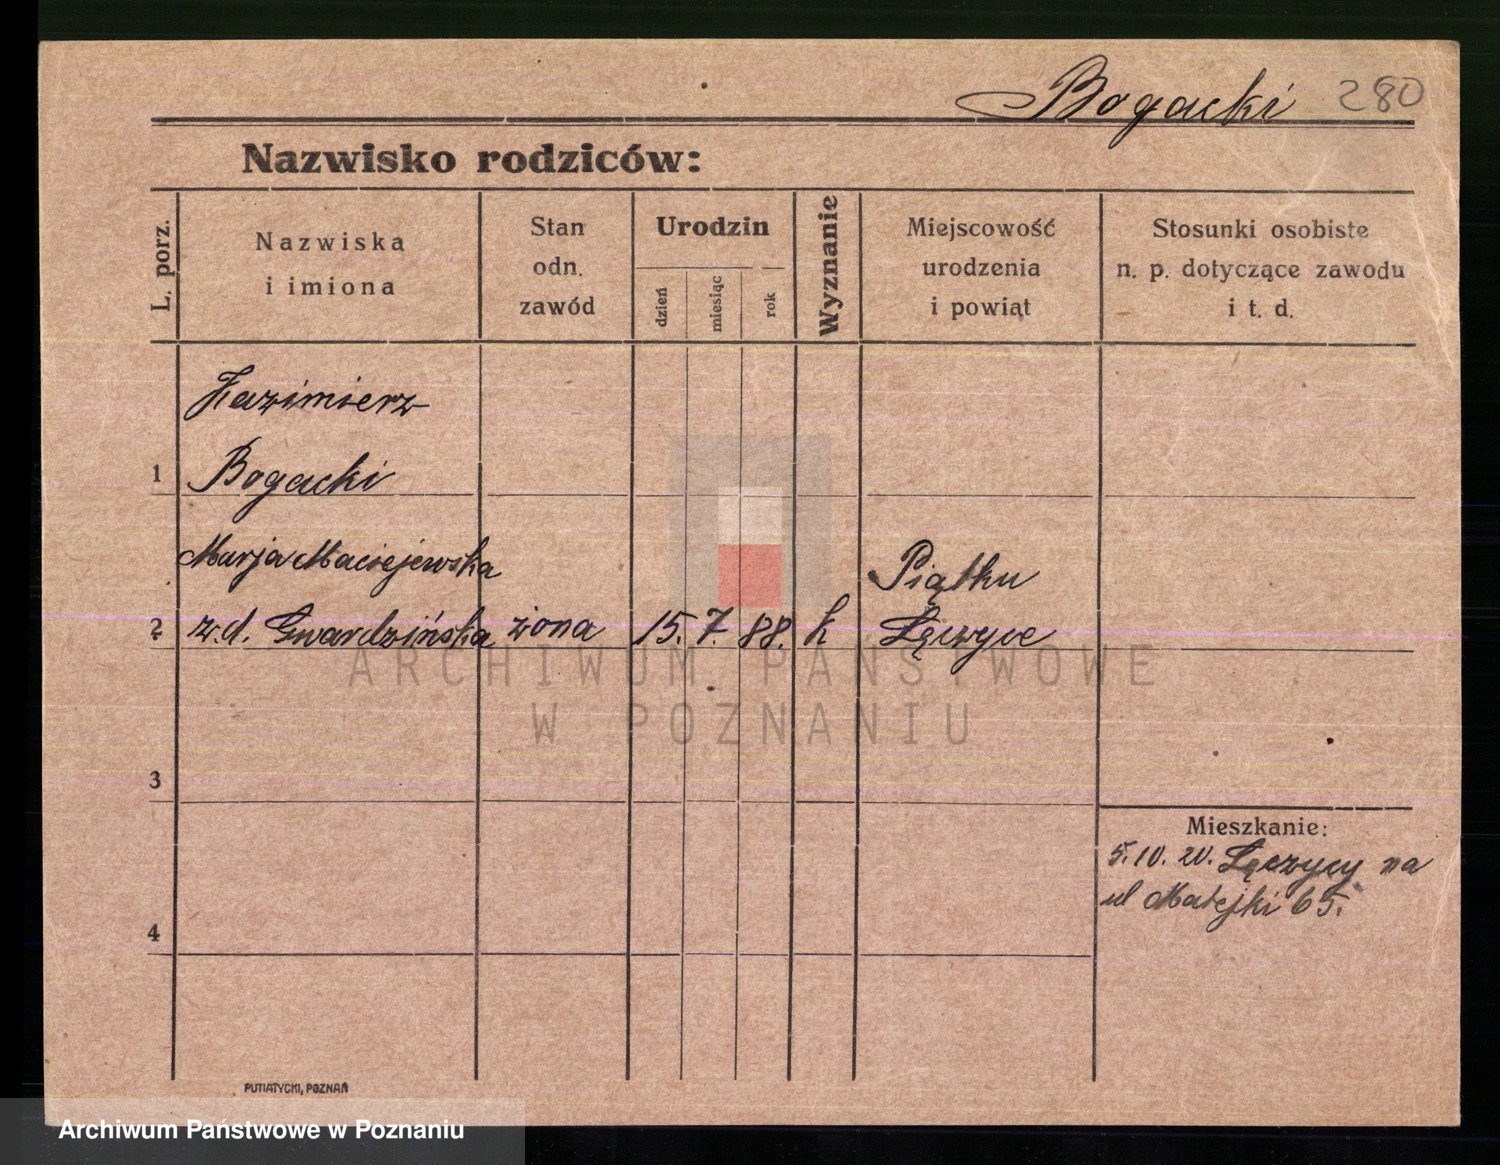 Bogacki 280
Nazwisko rodziców:
L. porz.
Nazwiska
i imiona
Stan
odn.
zawód
Urodzin
dzień
miesiąc
rok
Wyznanie
Miejscowość
urodzenia
i powiąt
Stosunki osobiste
n. p. dotyczące zawodu
i t. d.
Kazimierz
1 Bogacki
Marja Maciejewska Piątku
2 z.d. Gwardzińska żona 15. 7. 88. k Łęczyce
ARCHIWUM PAŃSTWOWE
W POZNANIU
3
Mieszkanie:
5.10.20. Łęczycy na
ul Matejki 65.
4
PUTIATYCKI, POZNAŃ
Archiwum Państwowe w Poznaniu